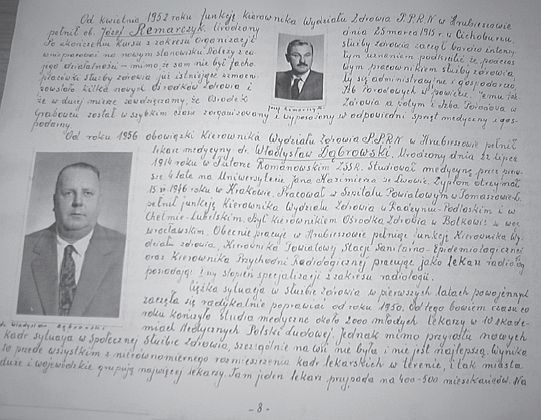 Od kwietnia 1952 roku funkcję kierownika Wydziału Zdrowia P.P.R.N w Hrubieszowie
pełnił ob. Józef Remarczyk. Urodzony dnia 25 marca 1915 r. w Cichoburzu,
Po ukończeniu Kursu z zakresu organizacji służby zdrowia zaczął bardzo intensywnie
pracować na nowym stanowisku. Należy z
uznaniem podkreślić, że poczas
jego działalności - mimo że sam nie był
fachowym pracownikiem służby zdrowia,
placówki służby zdrowia już istniejące
administracyjnie i gospodarczo,
powstało kilka nowych Ośrodków Zdrowia i
Izb Porodowych w powiecie.
że w dużej mierze zawdzięczamy, że Ośrodek
Zdrowia a potym i Izba Porodowa w
Grabowcu został w szybkim czasie zorganizowany i wyposażony w odpowiedni sprzęt medyczny i gos-
podarczy.
Józef Remarczyk
Od roku 1956 obowiązki Kierownika Wydziału Zdrowia P.P.R.N w Hrubieszowie pełnił
lekarz medycyny dr. Władysław Dąbrowski. Urodzony dnia 22 lipca
1914 roku w Tutore Romanowskim ZSSR. Studiował medycynę przez prawie
4 lata na Uniwersytecie Jana Kazimierza we Lwowie. Dyplom otrzymał
15 VI 1946 roku w Krakowie. Pracował w Szpitalu Powiatowym w Tomaszowie L.
pełnił funkcję Kierownika Wydziału Zdrowia w Radzyniu-Podlaskim i w
Chełmie-Lubelskim. Był kierownikiem Ośrodka Zdrowia w Bolkowie w woj.
wrocławskim. Obecnie pracuje w Hrubieszowie pełniąc funkcję Kierownika Wy-
działu zdrowia, Kierownika Powiatowej Stacji Sanitarno-Epidemiologicznej
oraz Kierownika Przychodni Radiologicznej pracując jako lekarz radiolog
posiadając I-ny stopień specjalizacji z zakresu radiologii.
dr. Władysław Dąbrowski
Ciężka sytuacja w służbie zdrowia w pierwszych latach powojennych
zaczęła się radykalnie poprawiać od roku 1950. Od tego bowiem czasu co
roku kończyło studia medyczne około 2000 młodych lekarzy w 10 Akade-
miach Medycznych Polski Ludowej. Jednak mimo przyrostu nowych
kadr sytuacja w Społecznej Służbie Zdrowia, szczególnie na wsi nie była i nie jest najlepsza. Wynika
to przede wszystkim z nierównomiernego rozmieszczenia kadr lekarskich w terenie, i tak miasta
duże i wojewódzkie grupują najwięcej lekarzy. Tam jeden lekarz przypada na 400-500 mieszkańców. Na
- 8 -